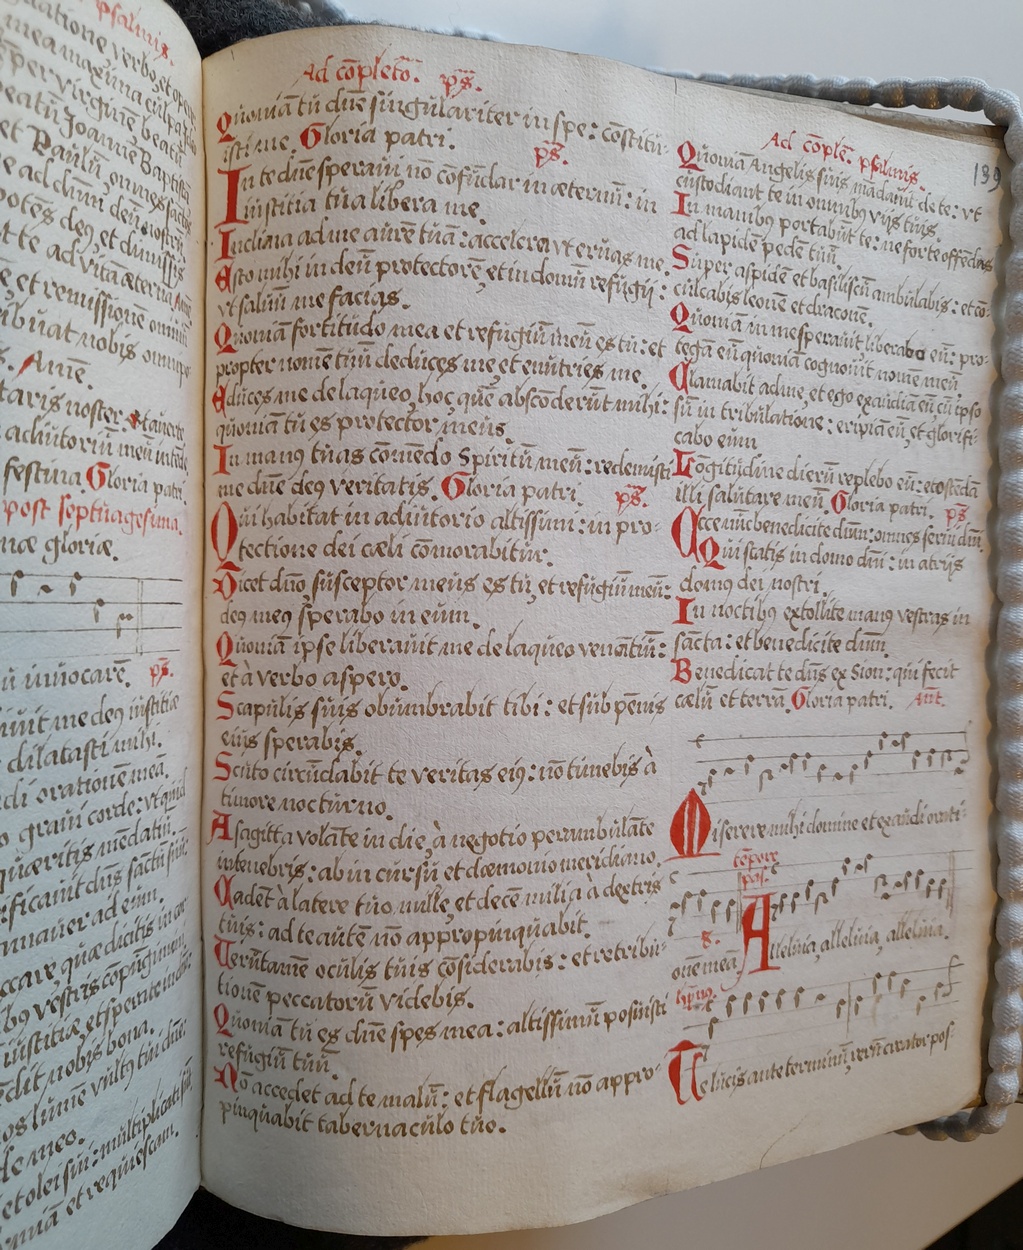 psalmis.
uatione verbo, et opere
mea maxima culpa
per virginē beatā
beatū Joannē Baptistā
et Paulū, omnes sāctos
e ad dn̄m deū nostrū
potēs deꝰ, et dimissis
t te ad vitā æternā, Amē
ē et remissionē omniū
ibuat nobis omnip
s. Amē.
taris noster. et averte
adiutoriū meū intēde
festina. Gloria patri
post septuagesima.
næ gloriæ.
ū invocarē. ps̄.
ivit me deꝰ iustitiæ
dilatasti mihi.
di orationē meā.
o gravi corde: vt quid
quæritis mēdatiū.
rificavit dn̄s sāctū suū
mavero ad eum.
ccare, quæ dicitis in cor
bꝰ vestris cōpūgimini
iustitiæ, et sperate in dn̄o
ēdit nobis bona.
os lumē vultꝰ tui dn̄e
de meo.
et olei sui: multiplicati sūt
rmiā et requiescam.
Ad cōpletō. ps̄.
Quoniā tū dn̄e singulariter in spe: cōstitu-
isti me. Gloria patri.
ps̄.
In te dn̄e speravi nō cōfūdar in æternū: in
iustitia tua libera me.
Inclina ad me aurē tuā: accelera vt eruas me.
Esto mihi in deū protectorē, et in domū refugij:
vt salvū me facias.
Quoniā fortitudo mea et refugiū meū es tu: et
propter nomē tuū deduces me, et enutries me.
Educes me de laqueo, hoc, quē abscōderūt mihi:
quoniā tu es protector meus.
In manꝰ tuas cōmēdo Spiritū meū: redemisti
me dn̄e deꝰ veritatis. Gloria patri. ps̄.
Qui habitat in adiutorio altissimi: in pro-
tectione dei cæli cōmorabitur.
Dicet dn̄o, susceptor meus es tu, et refugiū meū:
deꝰ meꝰ sperabo in eum.
Quoniā ipse liberavit me de laqueo venātiū:
et à verbo aspero.
Scapulis suis obumbrabit tibi: et sub pēnis
eiꝰ sperabis.
Scuto circūdabit te veritas eiꝰ: nō timebis à
timore nocturno.
A sagitta volāte in die, à negotio perambulāte
in tenebris: ab incursu et dæmonio meridiano.
Cadēt à latere tuo mille, et decē milia à dextris
tuis: ad te autē nō appropinquabit.
Verūtamē oculis tuis cōsiderabis: et retribu-
tionē peccatorū videbis.
Quoniā tu es dn̄e spes mea: altissimū posuisti
refugiū tuū.
Nō accedet ad te malū: et flagellū nō appro-
pinquabit tabernaculo tuo.
Ad cōple. psalmis.
139
Quoniā Angelis suis mādavit de te: vt
custodiant te in omnibꝰ vijs tuis.
In manibꝰ portabūt te: ne forte offēdas
ad lapidē pedē tuū.
Super aspidē et basiliscū ambulabis: et cō-
culcabis leonē et draconē.
Quoniā in me speravit liberabo eū: pro-
tegā eū quoniā cognovit nomē meū
Clamabit ad me, et ego exaudiā eū, cū ipso
sū in tribulatione: eripiā eū, et glorifi-
cabo eum
Lōgitudine dierū replebo eū: et ostēdā
illi salutare meū. Gloria patri. ps̄
Ecce nūc benedicite dn̄m: omnes servi dn̄i.
Qui statis in domo dn̄i: in atrijs
domꝰ dei nostri.
In noctibꝰ extollite manꝰ vestras in
sācta: et benedicite dn̄m.
Benedicat te dn̄s ex Sion: qui fecit
cælū et terrā. Gloria patri. Ant.
Miserere mihi domine et exaudi orati-
tēpore
pas.
onē meā
8.
Alleluia, alleluia, alleluia.
hȳno.
Te lucis ante terminū, rerū creator pos-